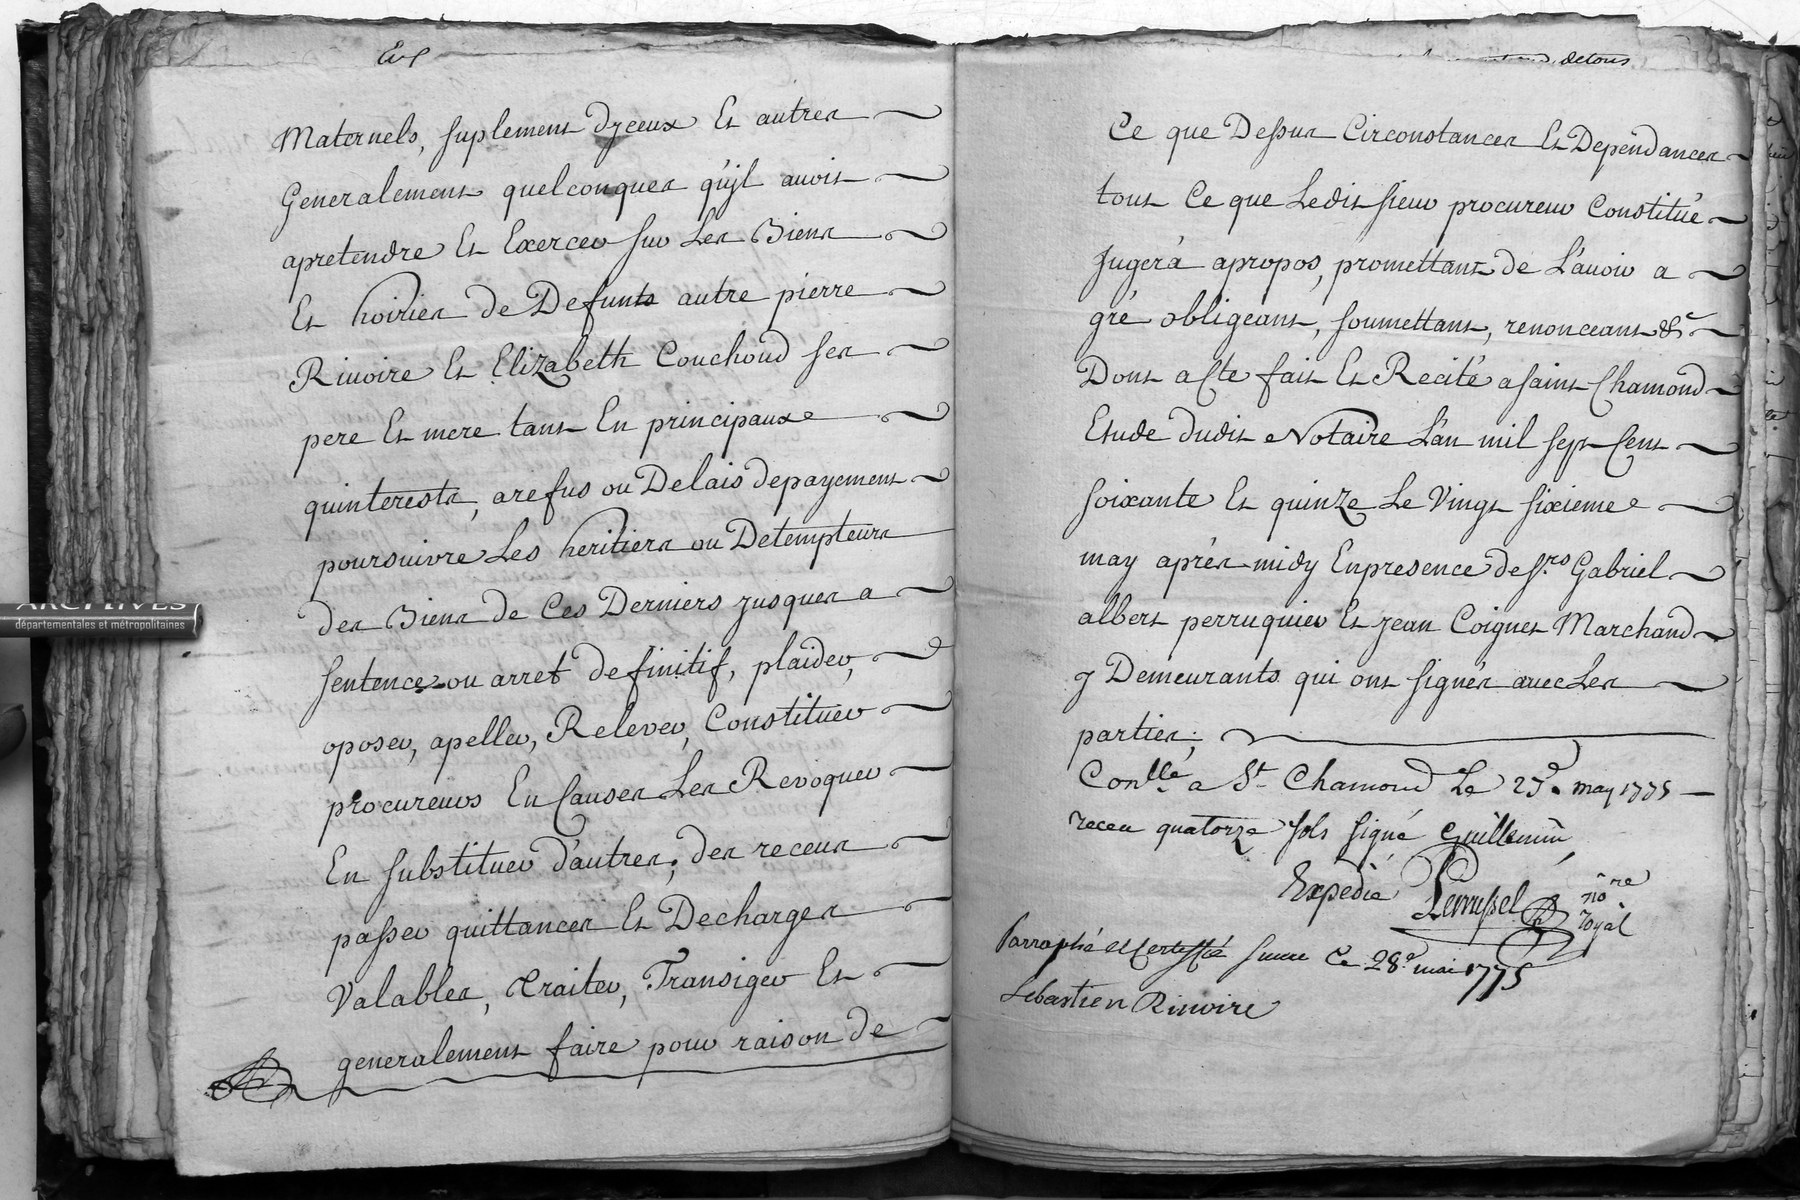 Maternels, suplement dyceux Et autres
Generalement quelconques qu'yl avoit
apretendre Et Exercer sur Les Biens
Et hoiries de Defunts autre pierre
Rivoire Et Elizabeth Couchoud ses
pere Et mere tant En principaux
qu'interests, arefus ou Delais depayement
poursuivre Les heritiers ou Detempteurs
des Biens de Ces Derniers jusques a
sentence ou arret definitif, plaider,
oposer, apeller, Relever, Constituer
procureurs En Causes Les Revoquer
En substituer d'autres; des receus
passer quittances Et Decharges
Valables, traiter, Transiger Et
generalement faire pour raison de
detous
Ce que Dessus Circonstances Et Dependances
tout Ce que Ledit sieur procureur Constitué
Jugera apropos, promettant de L'avoir a
gré obligeant, soumettant, renonceant &c
Dont acte fait Et Recité a saint Chamond
Etude dudit Notaire L'an mil sept Cent
soixante Et quinze Le Vingt sixieme
may aprés midy Enpresence de srs Gabriel
albert perruquier Et Jean Coignet Marchand
y Demeurants qui ont signés avec Les
parties;
Conllé a St Chamond Le 27e. may 1775
receu quatorze sols signé Guillemin
Expedié
nore
royal
Parraphé et Certiffié sincere Ce 28e mai 1775
Sebastien Rivoire
ARCHIVES
départementales et métropolitaines